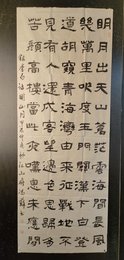 明月出天山蒼茫雲海間長風
幾萬里吹度玉門關漢下白登
道胡窺青海灣由來征戰地不
見有人還戍客望邊色思歸多
苦顏高樓當此夜歎息未應閒
李白詩關山月